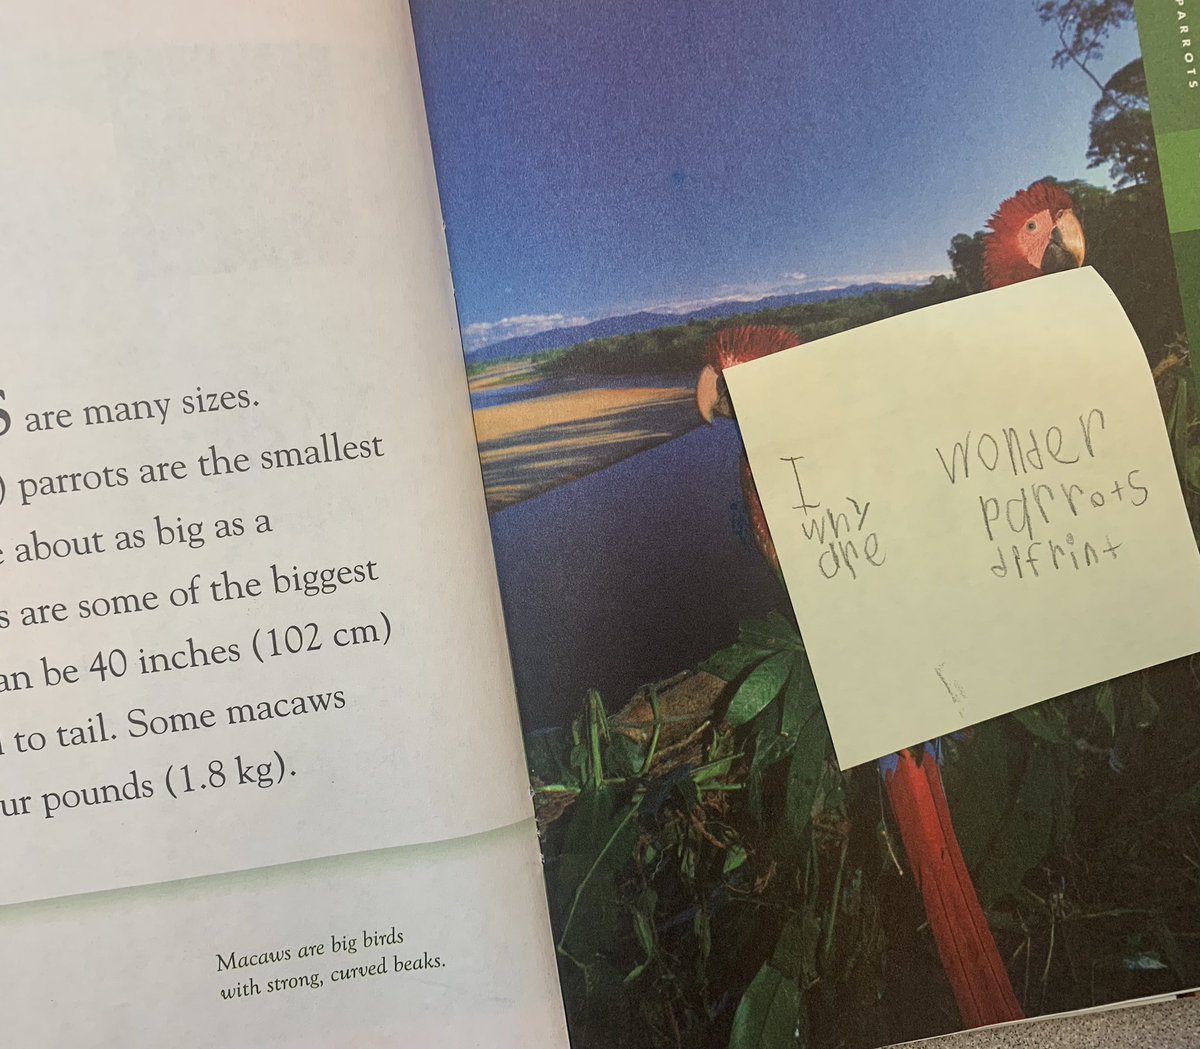 are many sizes.
parrots are the smallest
about as big as a
are some of the biggest
be 40 inches (102 cm)
to tail. Some macaws
pounds (1.8 kg).
Macaws are big birds
with strong, curved beaks.
PARROTS
I wonder
why parrots
are difrint